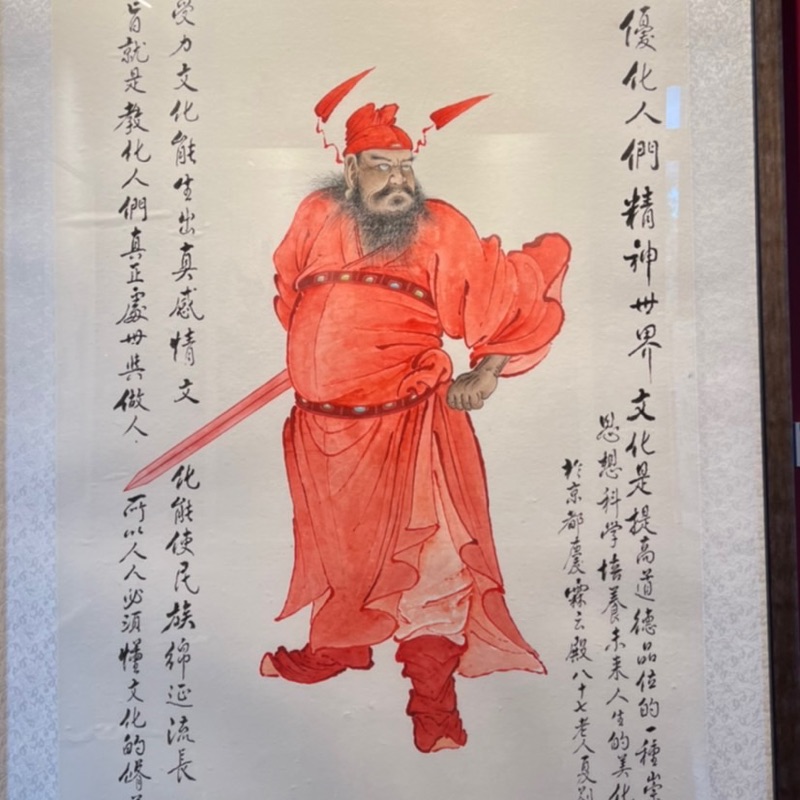 優化人們精神世界文化是提高道德品位的一種崇
思想科學培養未来人生的美化
於京都慶霖云殿八十七老人夏
受力文化能生出真感情文化能使民族綿延流長
旨就是教化人們真正處世與做人.所以人人必須懂文化的